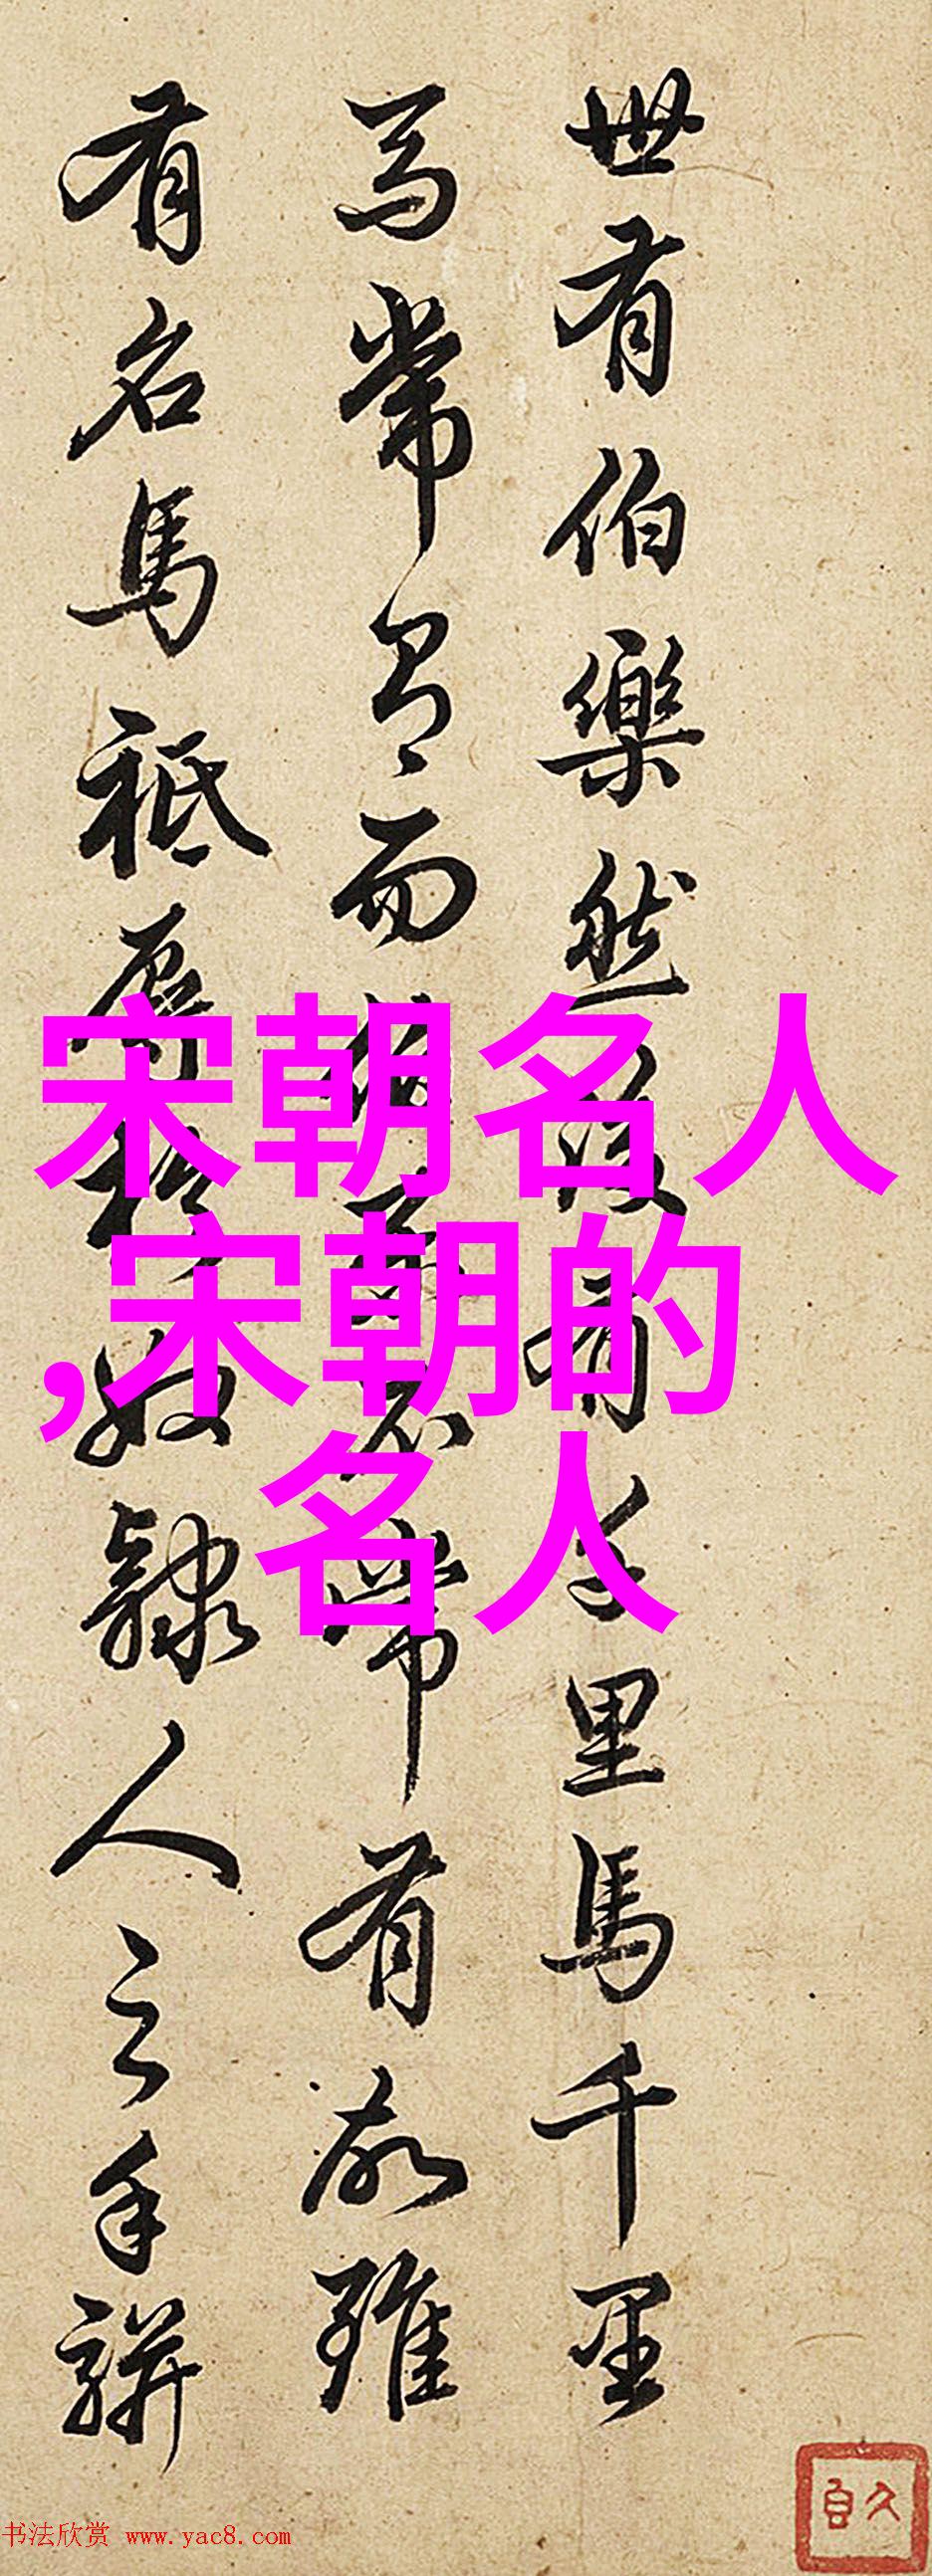 世有伯樂然後有千里馬千里
馬常有而伯樂不常有故雖
有名馬祗辱於奴隸人之手駢
宋朝名人
,宋朝的
名人
书法欣赏 www.yac8.com